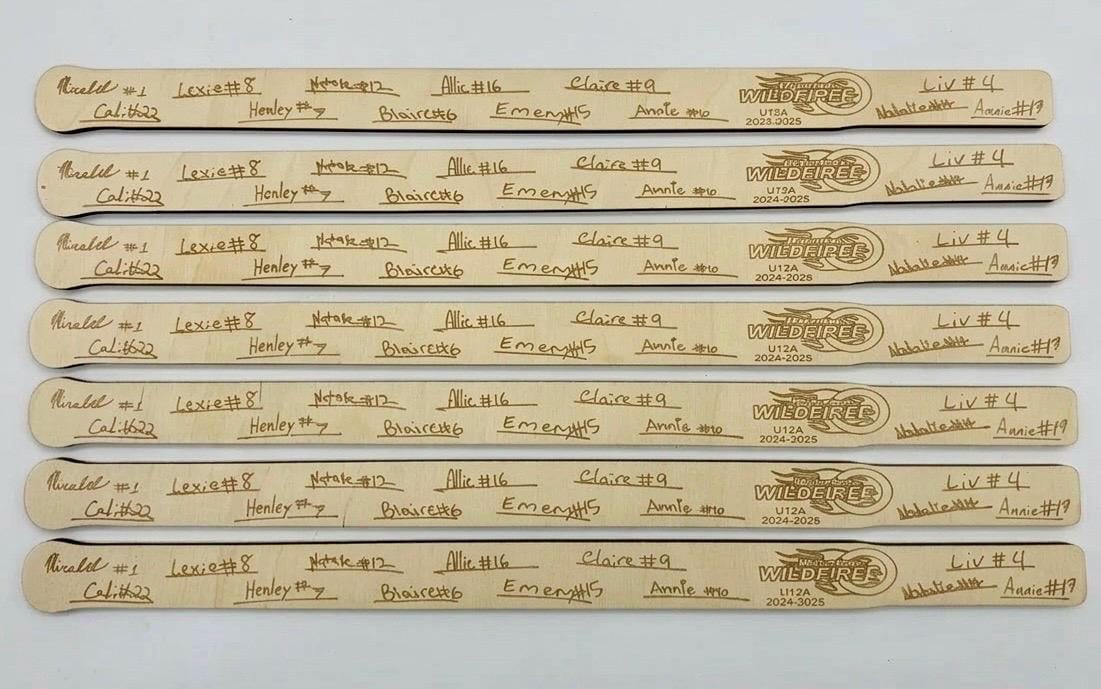 Mirabel #1 Lexie#8 #12 Allie #16 Claire #9 WILDFIREE Liv #4
Cali#22 Henley #7 Blaire#6 Emery#15 Annie #10 U13A Natalie## Annie#19
2023-0025
Mirabel #1 Lexie#8 #12 Allie #16 Claire #9 WILDFIREE Liv #4
Cali#22 Henley #7 Blaire#6 Emery#15 Annie #10 U12A Natalie## Annie#19
2024-2025
Mirabel #1 Lexie#8 #12 Allie #16 Claire #9 WILDFIREE Liv #4
Cali#22 Henley #7 Blaire#6 Emery#15 Annie #10 U12A Natalie## Annie#19
2024-2025
Mirabel #1 Lexie#8 #12 Allie #16 Claire #9 WILDFIREE Liv #4
Cali#22 Henley #7 Blaire#6 Emery#15 Annie #10 U12A Natalie## Annie#19
2024-2025
Mirabel #1 Lexie#8 #12 Allie #16 Claire #9 WILDFIREE Liv #4
Cali#22 Henley #7 Blaire#6 Emery#15 Annie #10 U12A Natalie## Annie#19
2024-3025
Mirabel #1 Lexie#8 #12 Allie #16 Claire #9 WILDFIREE Liv #4
Cali#22 Henley #7 Blaire#6 Emery#15 Annie #10 U12A Natalie## Annie#19
2024-2025
Mirabel #1 Lexie#8 #12 Allie #16 Claire #9 WILDFIREE Liv #4
Cali#22 Henley #7 Blaire#6 Emery#15 Annie #10 LI12A Natalie## Annie#19
2024-3025